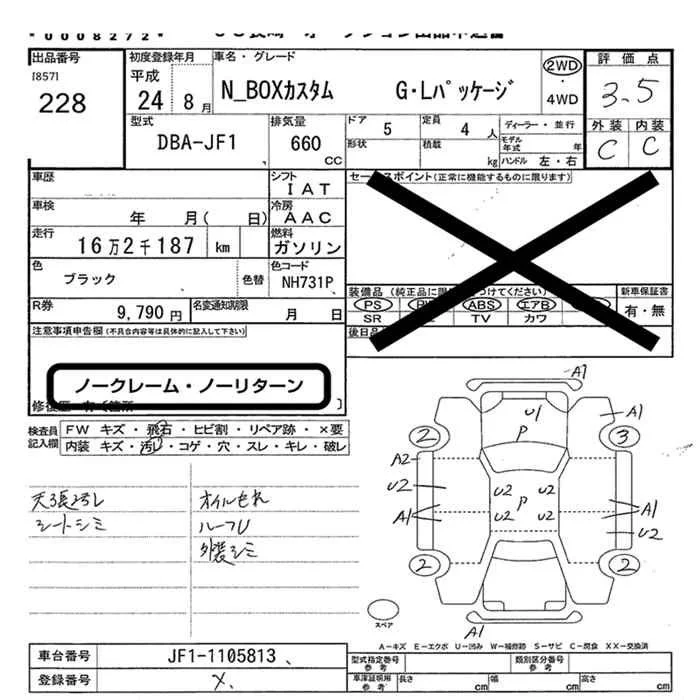 *00008272*
出品番号
[857]
228
初度登録年月
平成
24年8月
車名・グレード
N_BOXカスタム G・Lパッケージ
2WD
・
4WD
評価点
3.5
外装 内装
C C
型式
DBA-JF1
排気量
660
CC
ドア
5
定員
4人
形状
積載
kg
ディーラー・並行
モデル年式 年
ハンドル 左・右
車歴
シフト
IAT
車検
年 月( 日)
冷房
AAC
走行
16万2千187 km
燃料
ガソリン
色
ブラック
色替
色コード
NH731P
R券
9,790円
名変通知期限
月 日
セールスポイント(正常に機能するものに限ります)
装備品(純正品に限
つけてください)
PS
ABS
エアB
SR
TV
カワ
新車保証書
有・無
後日品
注意事項申告欄(不具合内容等は具体的に記入して下さい)
ノークレーム・ノーリターン
検査員記入欄
FW キズ・飛石・ヒビ割・リペア跡・×要
内装 キズ・汚レ・コゲ・穴・スレ・キレ・破レ
オイルもれ
シートシミ
ルーフU
A1
U1
P
A1
2
3
A2
U2
U2
U2
P
U2
U2
A1
A1
U2
2
2
A1
スペア
A－キズ E－エクボ U－凹ミ W－補修跡 S－サビ C－腐食 XX－交換済
車台番号
JF1-1105813
登録番号
型式指定番号
参考
類別区分番号
参考
車庫証明用
参考
長さ cm
幅 cm
高さ cm